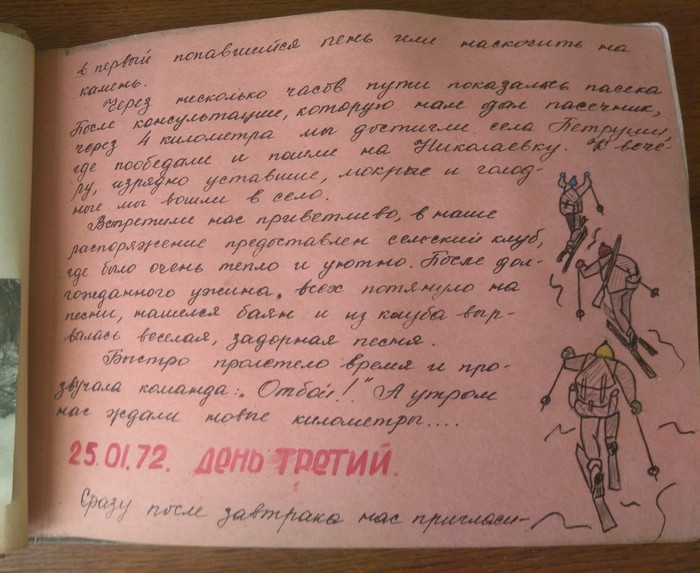 в первый попавшийся пень или наскочить на
камень.
Через несколько часов пути показалась пасека
После консультации, которую нам дал пасечник,
через 4 километра мы достигли села Петруши,
где пообедали и пошли на Николаевку. К вече-
ру, изрядно уставшие, мокрые и голод-
ные мы вошли в село.
Встретили нас приветливо, в наше
распоряжение предоставлен сельский клуб,
где было очень тепло и уютно. После дол-
гожданного ужина, всех потянуло на
песни, нашелся баян и из клуба выр-
валась веселая, задорная песня.
Быстро пролетело время и про-
звучала команда: „Отбой!" А утром
нас ждали новые километры....
25.01.72. ДЕНЬ ТРЕТИЙ.
Сразу после завтрака нас пригласи-